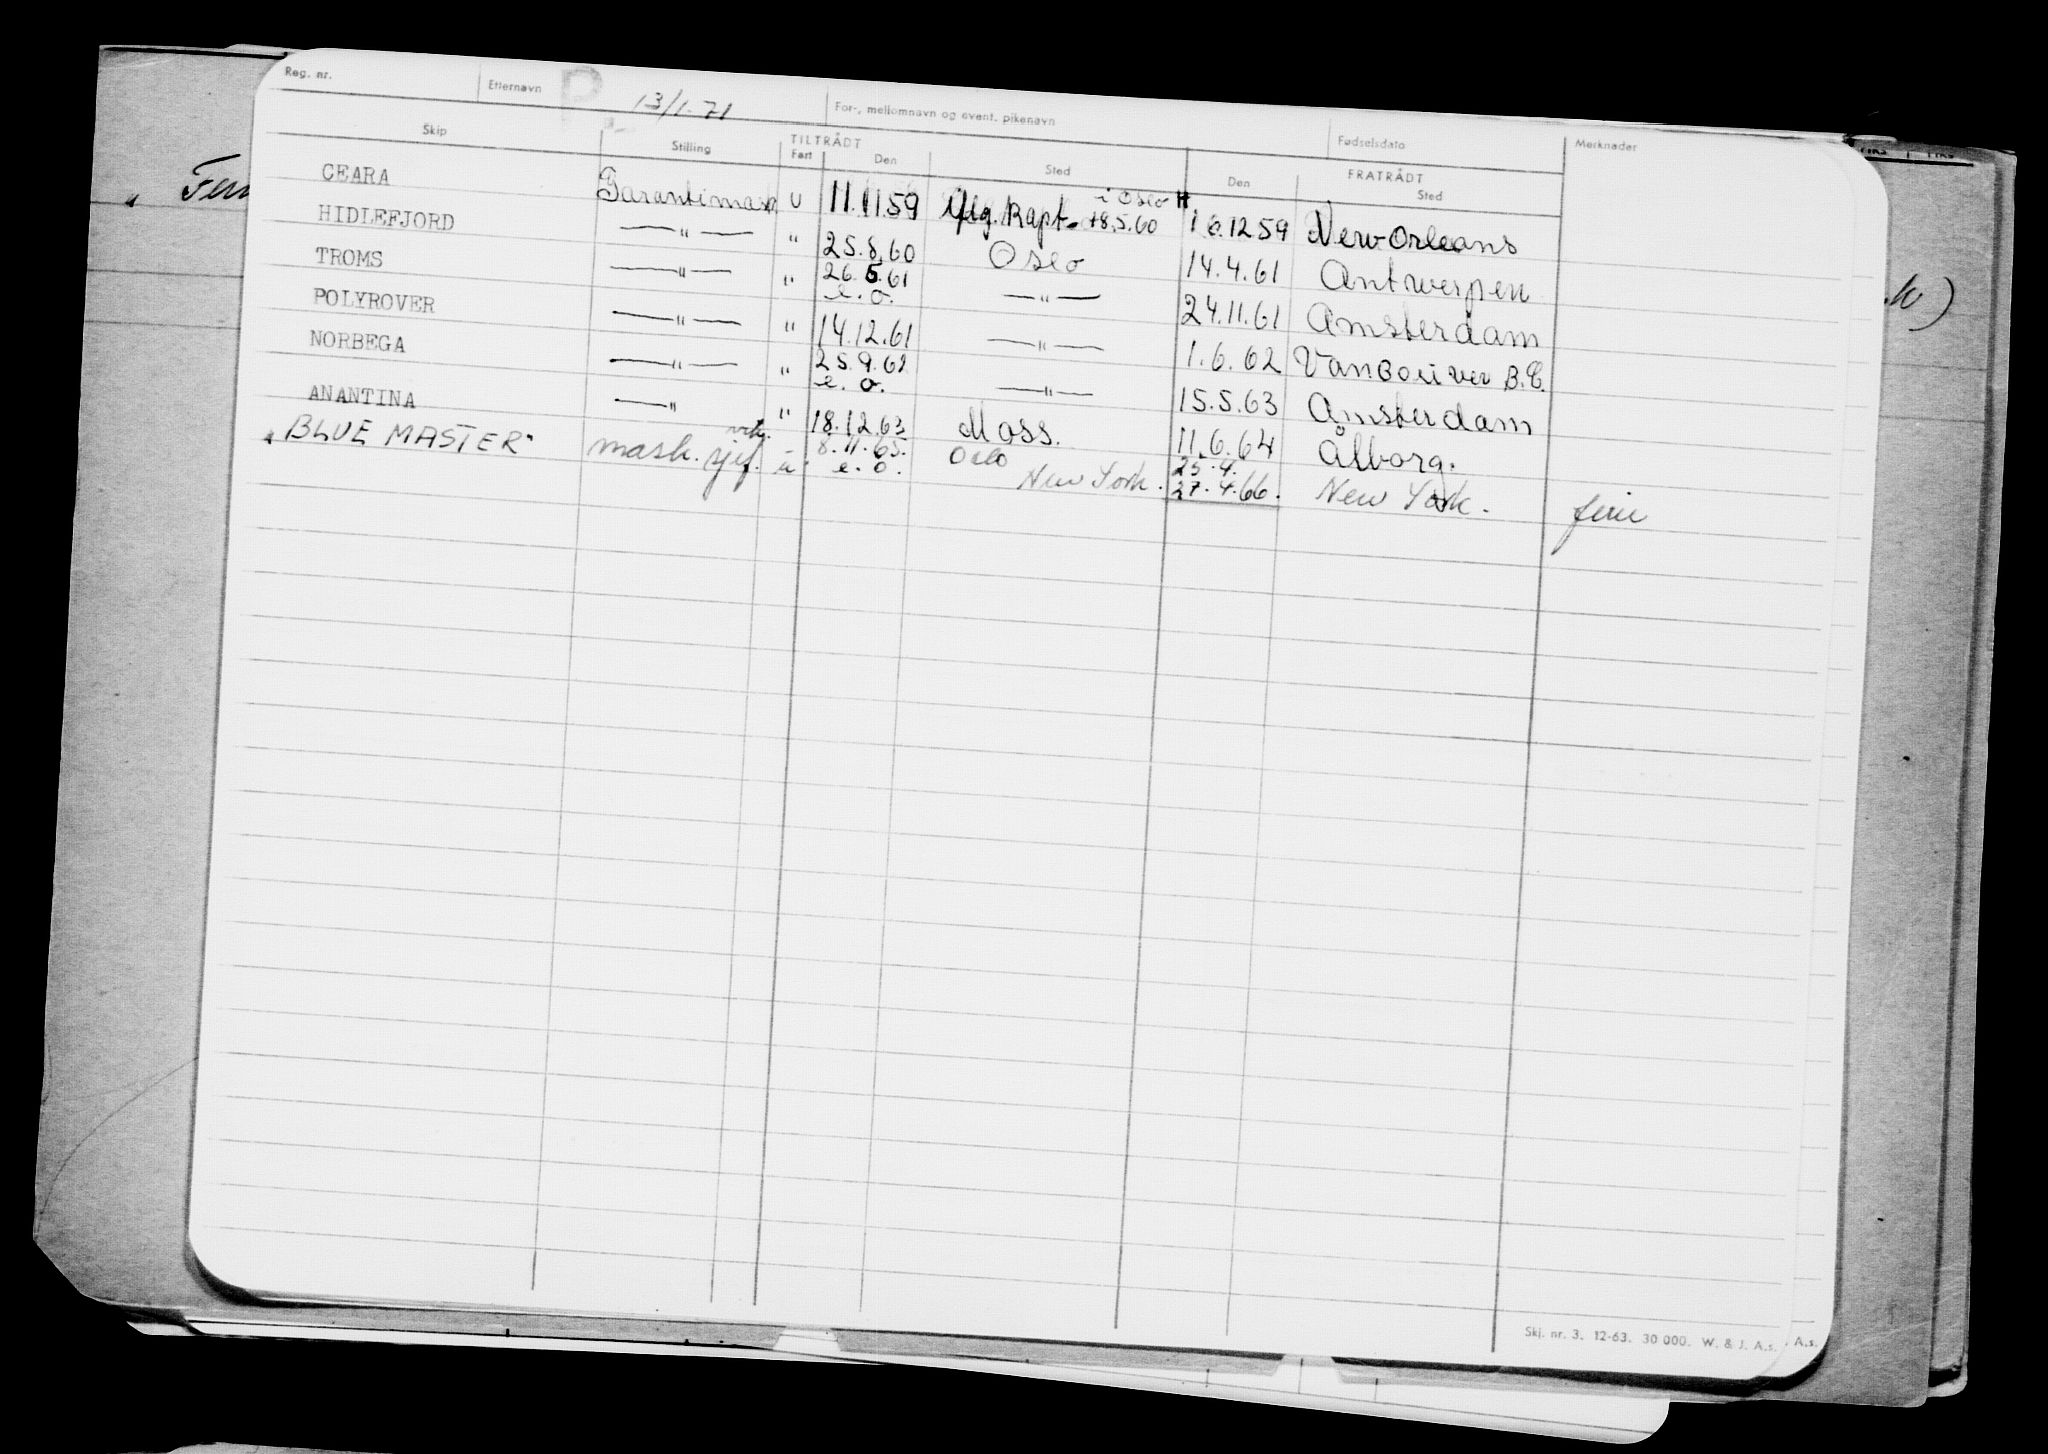 Reg. nr. Etternavn P 13/1-71 For-, mellomnavn og event. pikenavn Fødselsdato Merknader
Skip Stilling TILTRÅDT FRATRÅDT
Fart Den Sted Den Sted
CEARA Garantimask U 11.11.59 Mlg. Rapt. i Oslo 18.5.60 16.12.59 New Orleans
HIDLEFJORD —"— " 25.8.60 Oslo 14.4.61 Antwerpen
TROMS —"— " 26.5.61 e.o. —"— 24.11.61 Amsterdam
POLYROVER —"— " 14.12.61 —"— 1.6.62 Vancouver B.C.
NORBEGA —"— " 25.9.62 e.o. —"— 15.5.63 Amsterdam
ANANTINA —" " 18.12.63 Moss. 11.6.64 Ålborg.
"BLUE MASTER" mask. sjef. vik. u 8.11.65. e.o. Oslo New York. 25.4. 27.4.66. New York. ferie
Skj. nr. 3. 12-63. 30 000. W. & J. A.s. A.s.